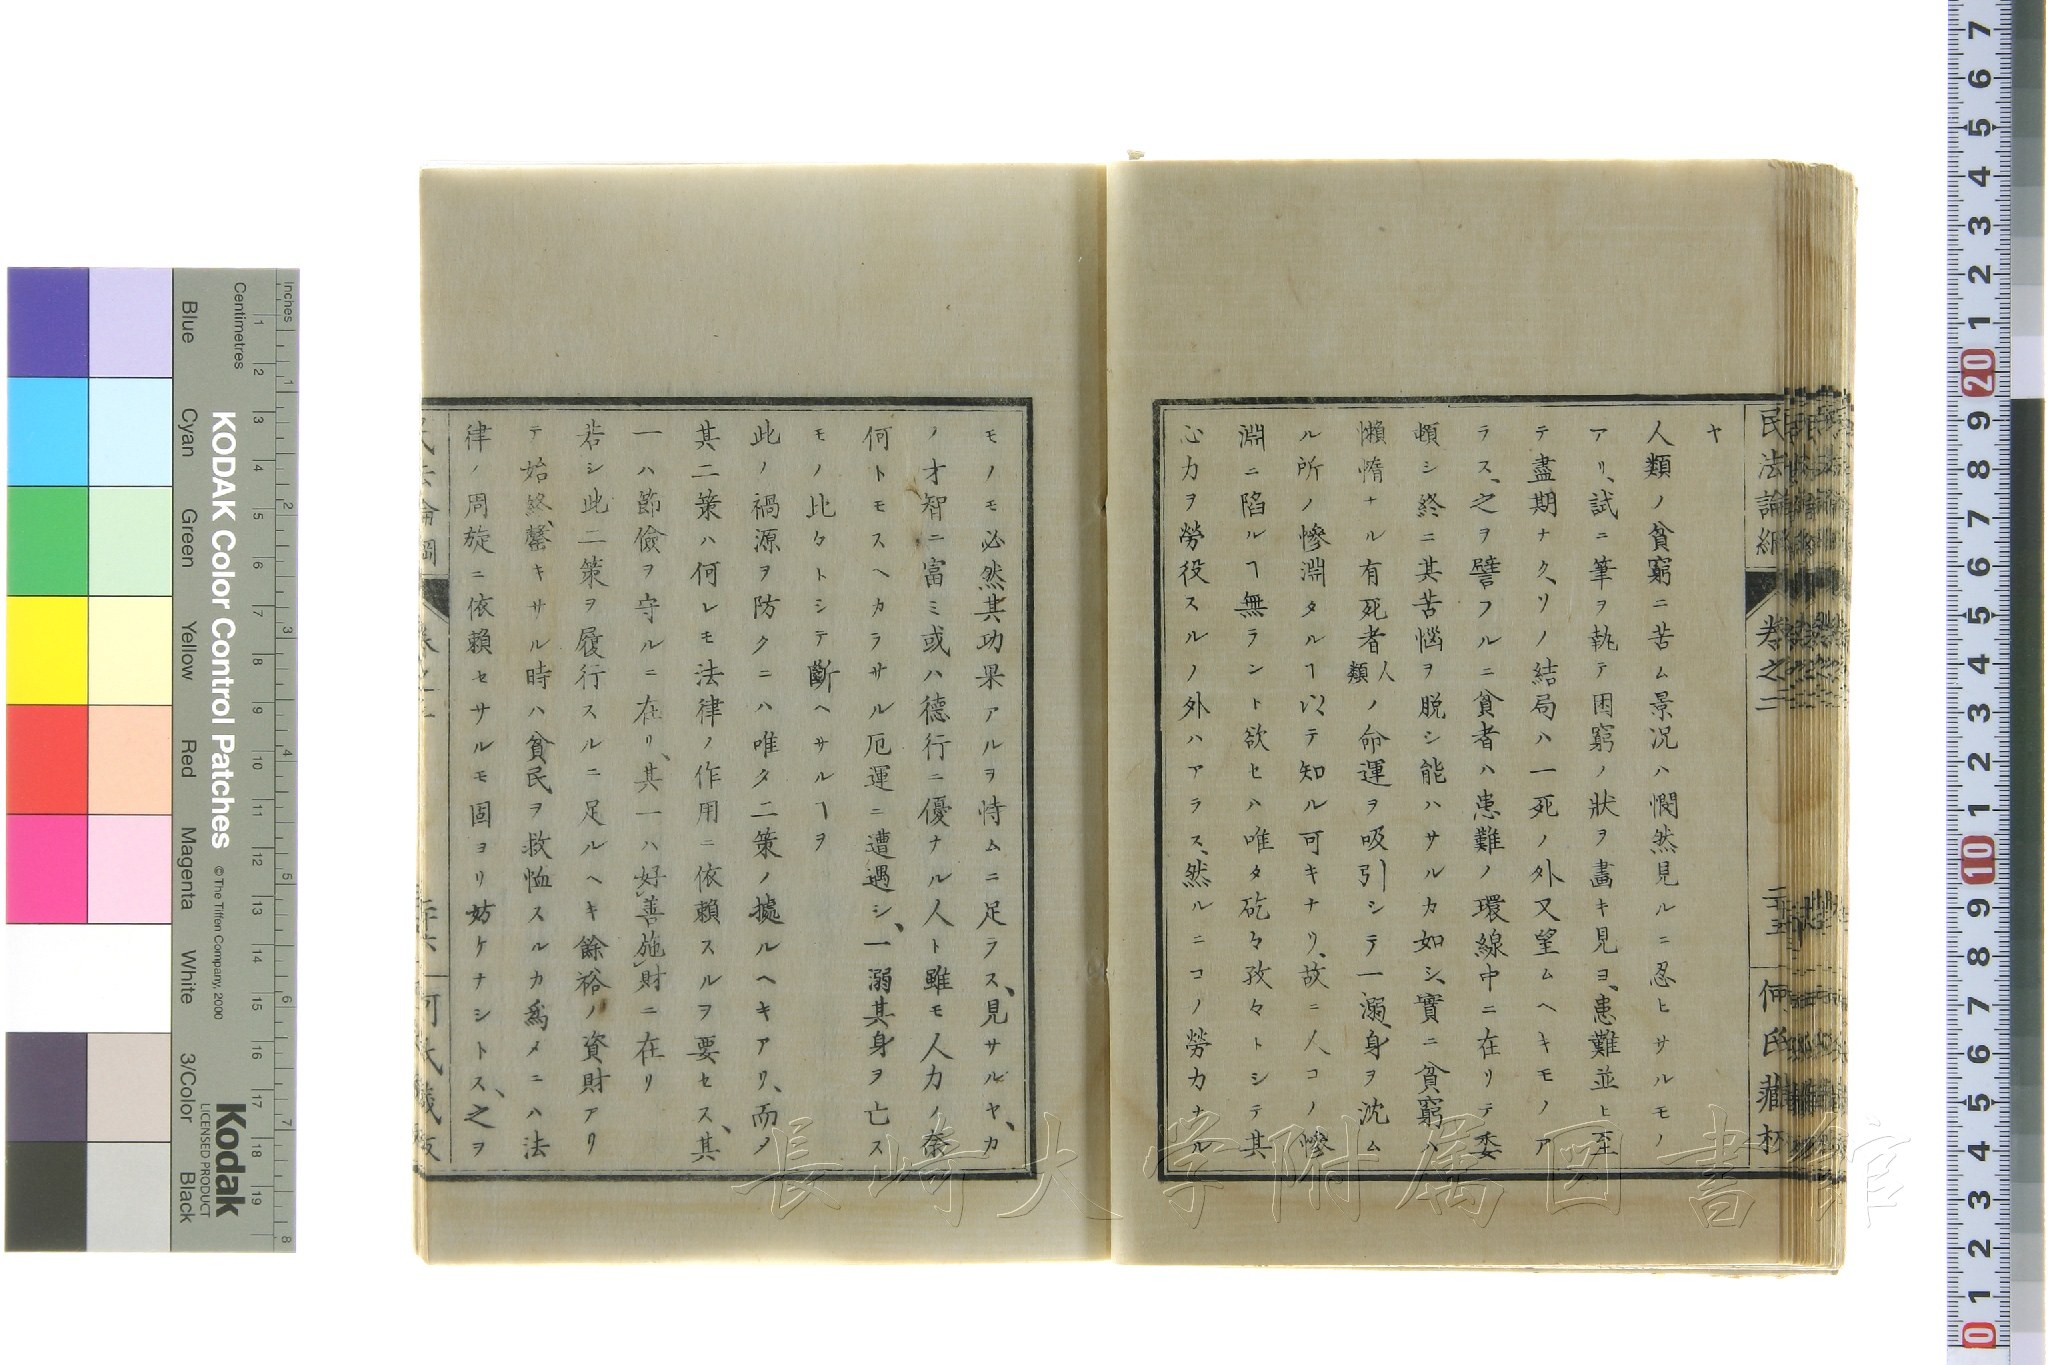 ヤ
人類ノ貧窮ニ苦ム景況ハ憫然見ルニ忍ヒサルモノ
アリ、試ニ筆ヲ執テ困窮ノ狀ヲ畵キ見ヨ、患難並ヒ至
テ盡期ナク、ソノ結局ハ一死ノ外又望ムヘキモノア
ラス、之ヲ譬フルニ貧者ハ患難ノ環線中ニ在リテ委
頓シ終ニ其苦惱ヲ脱シ能ハサルカ如シ、實ニ貧窮ハ
懶惰ナル有死者人類ノ命運ヲ吸引シテ一溺身ヲ沈ム
ル所ノ慘淵タルヿ以テ知ル可キナリ、故ニ人コノ慘
淵ニ陷ルヿ無ラント欲セハ唯タ矻々孜々トシテ其
心力ヲ勞役スルノ外ハアラス、然ルニコノ勞力ナル
民法論綱
卷之二
二十五
何氏藏板
モノモ必然其功果アルヲ恃ムニ足ラス、見サルヤ、カ
ノ才智ニ富ミ或ハ德行ニ優ナル人ト雖モ人力ノ奈
何トモスヘカラサル厄運ニ遭遇シ、一溺其身ヲ亡ス
モノ比々トシテ斷ヘサルヿヲ
此ノ禍源ヲ防クニハ唯タ二策ノ據ルヘキアリ、而ノ
其二策ハ何レモ法律ノ作用ニ依賴スルヲ要セス、其
一ハ節儉ヲ守ルニ在リ、其一ハ好善施財ニ在リ
若シ此二策ヲ履行スルニ足ルヘキ餘裕ノ資財アリ
テ始終、罄キサル時ハ貧民ヲ救恤スルカ爲メニハ法
律ノ周旋ニ依賴セサルモ固ヨリ妨ケナシトス、之ヲ
長崎大学附属図書館
KODAK Color Control Patches
© The Tiffen Company, 2000
Kodak
LICENSED PRODUCT
Inches
Centimetres
Blue
Cyan
Green
Yellow
Red
Magenta
White
3/Color
Black